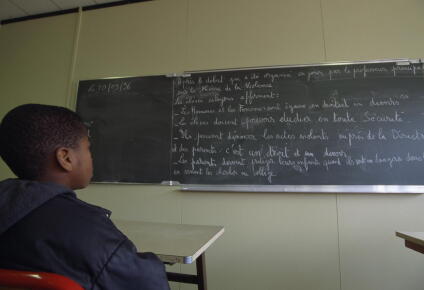 Le 10/03/06
Après le débat qui a été organisé ce jour par le professeur principal
sur le thème de la Violence
les élèves citoyens affirment:
- Les Hommes et les Femmes sont égaux en droits et en devoirs
- Les élèves doivent pouvoir étudier en toute Sécurité.
- Ils peuvent dénoncer les actes violents auprès de la Direction
et des parents. C'est un droit et un devoir
- Les parents doivent protéger leurs enfants quand ils sont en danger dans